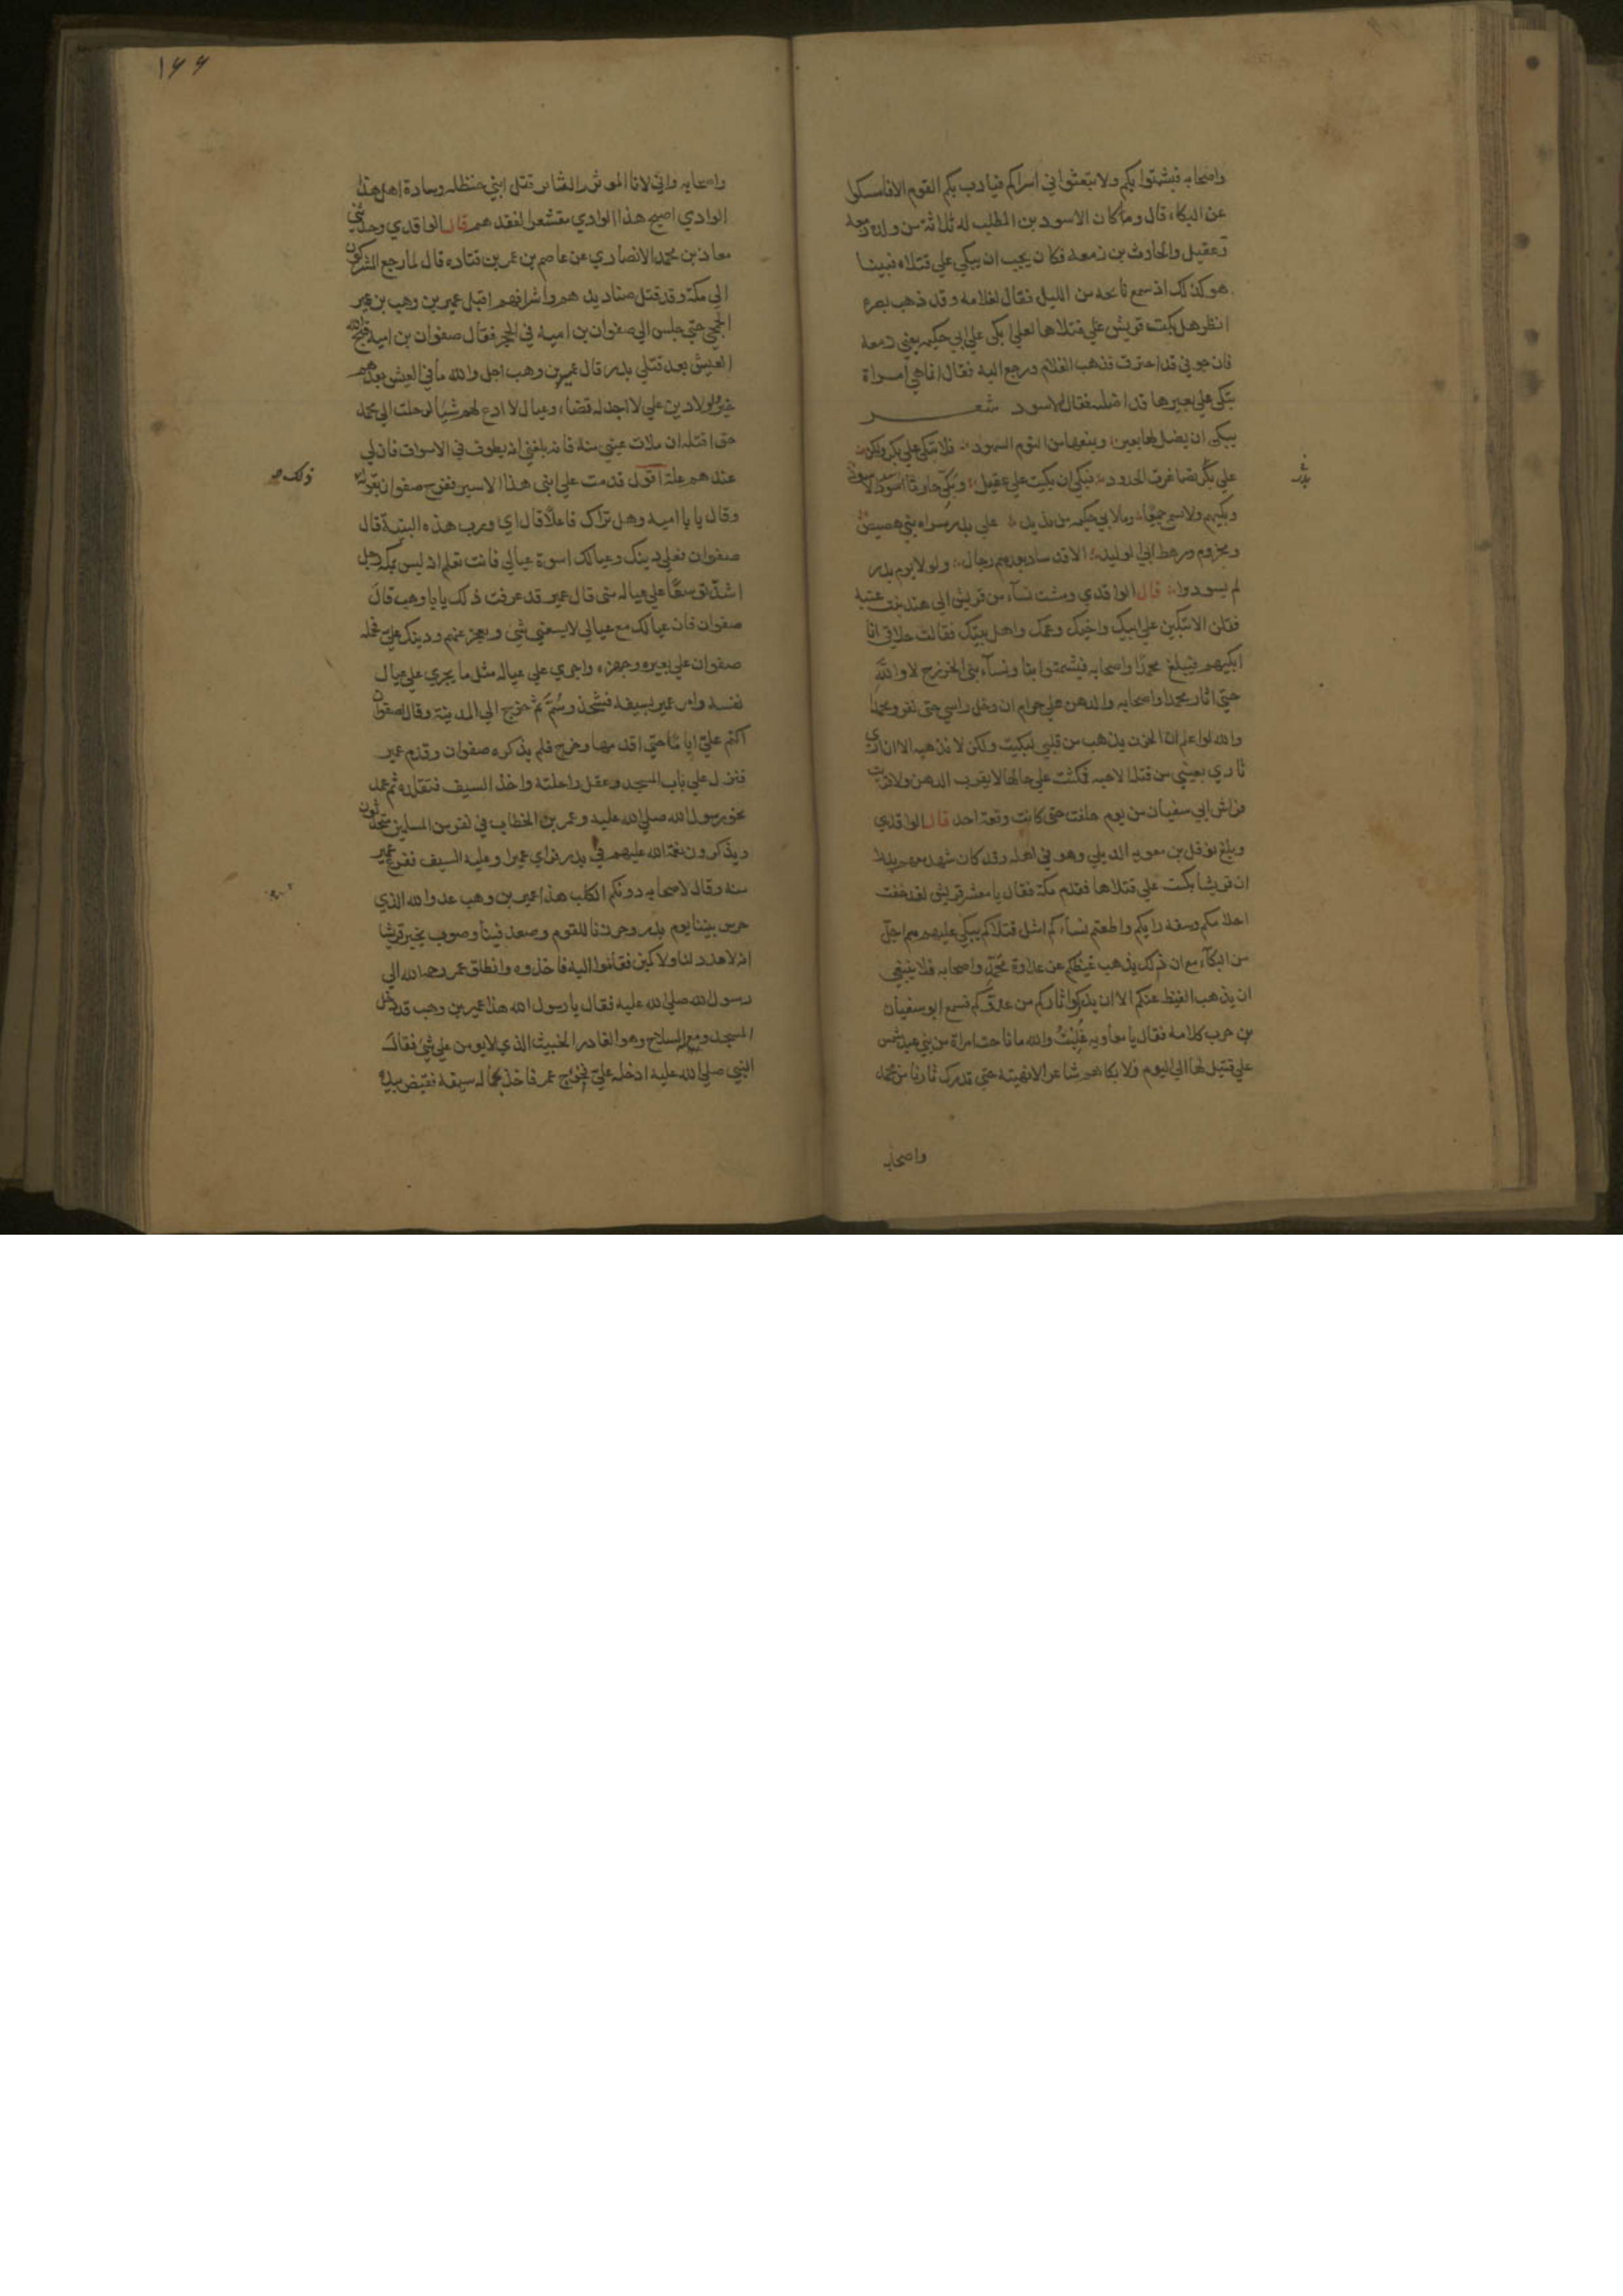 واصحابه فيشمتوا بكم ولا تبعثوا في اسراكم فيادب بكم القوم الا فامسكوا
عن البكاء قال وما كان الاسود بن المطلب له ثلاثة من ولده زمعه
وعقيل والحارث بن زمعه فكان يحب ان يبكي علي قتلاه فبينا
هو كذلك اذ سمع نائحه من الليل فقال لغلامه وقد ذهب بصره
انظر هل بكت قريش علي قتلاها لعلي ابكي علي ابي حكيمه يعني زمعه
فان جوفي قد احترق فذهب الغلام ورجع اليه فقال انما هي امراة
تبكي علي بعيرها قد اضلته فقال الاسود شعر
يبكي ان يضل لها بعير ويمنعها من النوم السهود فلا تبكي علي بكر ولكن
علي بكر تصاغرت الخدود فبكي ان بكيت علي عقيل وبكي حارثا اسود الاسود
وبكيهم ولا تسمي جميعا وما لابي حكيمه من نديد علي بدر سراه بني هصيص
ومخزوم ورهط ابي الوليد الا قد ساد بعدهم رجال ولولا يوم بدر
لم يسودوا قال الواقدي ومشت نسآء من قريش الي هند بنت عتبة
فقلن الا تبكين علي ابيك واخيك وعمك واهل بيتك فقالت حلاقي انا
ابكيهم فيبلغ محمدا واصحابه فيشمتوا بنا ونسآء بني الخزرج لا والله
حتي اثار محمدا واصحابه والدهن علي حرام ان دخل راسي حتي نغزو محمدا
والله لو اعلم ان الحزن يذهب من قلبي لبكيت ولكن لا يذهبه الا ان اري
ثاري بعيني من قتلة الاحبه فمكثت علي حالها لا يقرب الدهن ولا قربت
فراش ابي سفيان من يوم حلفت حتي كانت وقعة احد قال الواقدي
وبلغ نوفل بن معويه الديلي وهو في اهله وقد كان شهد معهم بدرا
ان قريشا بكت علي قتلاها فقدم مكة فقال يا معشر قريش لقد خفت
احلامكم وسفه رايكم واطعتم نسآءكم امثل قتلاكم يبكي عليهم هم اجل
من البكآء مع ان ذلك يذهب غيظكم عن عداوة محمد واصحابه فلا ينبغي
ان يذهب الغيظ عنكم الا ان يدركوا ثاركم من عدوكم فسمع ابو سفيان
بن حرب كلامه فقال يا معاويه غلبت والله ما ناحت امراة من بني عبد شمس
علي قتيل لها الي اليوم ولا بكاهم شاعر الا نهيته حتي ندرك ثارنا من محمد
واصحابه
بدر
١٤٤
واصحابه واني لانا الموتور الثاير قتل ابني حنظله وسادة اهل هذا
الوادي اصبح هذا الوادي مقشعرا لفقدهم قال الواقدي وحدثني
معاذ بن محمد الانصاري عن عاصم بن عمر بن قتاده قال لما رجع المشركون
الي مكة وقد قتل صناديدهم واشرافهم اقبل عمير بن وهب بن عمير
الجمحي حتي جلس الي صفوان بن اميه في الحجر فقال صفوان بن اميه قبح الله
العيش بعد قتلي بدر قال عمير بن وهب اجل والله ما في العيش بعدهم
خير ولولا دين علي لا اجد له قضاء وعيال لا ادع لهم شيا لرحلت الي محمد
حتي اقتله ان ملات عيني منه فانه بلغني انه يطوف في الاسواق فان لي
عندهم علة اقول قدمت علي ابني هذا الاسير ففرح صفوان بقوله
ذلك صح
وقال يا با اميه وهل تراك فاعلا قال اي ورب هذه البنية قال
صفوان فعلي دينك وعيالك اسوة عيالي فانت تعلم انه ليس بمكة رجل
اشد توسعا علي عياله مني قال عمير قد عرفت ذلك يا با وهب قال
صفوان فان عيالك مع عيالي لا يسعني شي ويعجز عنهم ودينك علي فحمله
صفوان علي بعيره وجهزه واجري علي عياله مثل ما يجري علي عيال
نفسه وامر عمير بسيفه فشحذ وسم ثم خرج الي المدينة وقال لصفوان
اكتم علي اياما حتي اقدمها وخرج فلم يذكره صفوان وقدم عمير
فنزل علي باب المسجد وعقل راحلته واخذ السيف فتقلده ثم عمد
نحو رسول الله صلي الله عليه وعمر بن الخطاب في نفر من المسلمين يتحدثون
ويذكرون نعمة الله عليهم في بدر فراي عميرا وعليه السيف ففزع عمر
منه وقال لاصحابه دونكم الكلب هذا عمير بن وهب عدو الله الذي
حرش بيننا يوم بدر وحزرنا للقوم وصعد فينا وصوب يخبر قريشا
انه لا عدد لنا ولا كمين فقاموا اليه فاخذوه وانطلق عمر رحمه الله الي
رسول الله صلي الله عليه فقال يا رسول الله هذا عمير بن وهب قد دخل
المسجد ومعه السلاح وهو الغادر الخبيث الذي لا يومن علي شي فقال
النبي صلي الله عليه ادخله علي فخرج عمر فاخذ بحمالة سيفه فقبض بيده